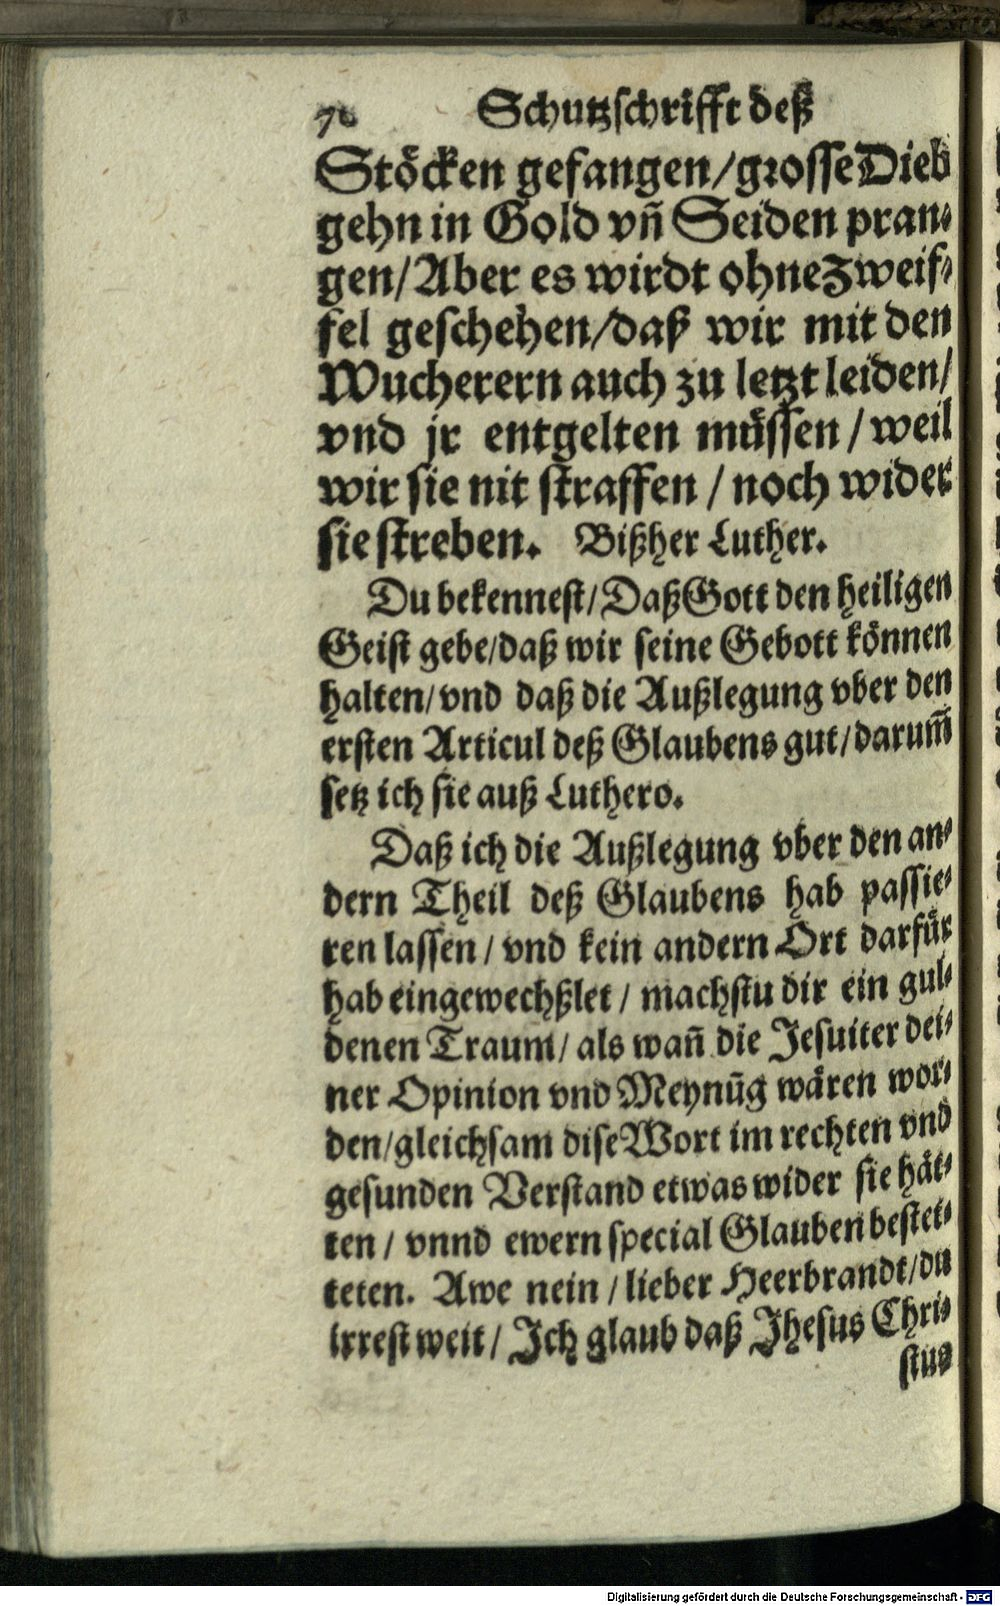 76 Schutzschrifft deß
Stöcken gefangen/grosse Dieb
gehn in Gold vñ Seiden pran⸗
gen/Aber es wirdt ohne Zweif⸗
fel geschehen/daß wir mit den
Wucherern auch zu letzt leiden/
vnd jr entgelten müssen / weil
wir sie nit straffen / noch wider
sie streben. Bißher Luther.
Du bekennest/Daß Gott den heiligen
Geist gebe/daß wir seine Gebott können
halten/vnd daß die Außlegung vber den
ersten Articul deß Glaubens gut/darum̃
setz ich sie auß Luthero.
Daß ich die Außlegung vber den an⸗
dern Theil deß Glaubens hab passie⸗
ren lassen / vnd kein andern Ort darfür
hab eingewechßlet / machstu dir ein gul⸗
denen Traum/ als wañ die Jesuiter dei⸗
ner Opinion vnd Meynũg wären wor⸗
den/gleichsam dise Wort im rechten vnd
gesunden Verstand etwas wider sie hät⸗
ten / vnnd ewern special Glauben bestet⸗
teten. Awe nein / lieber Heerbrandt/du
irrest weit/ Ich glaub daß Jhesus Chri⸗
stus
Digitalisierung gefördert durch die Deutsche Forschungsgemeinschaft - DFG